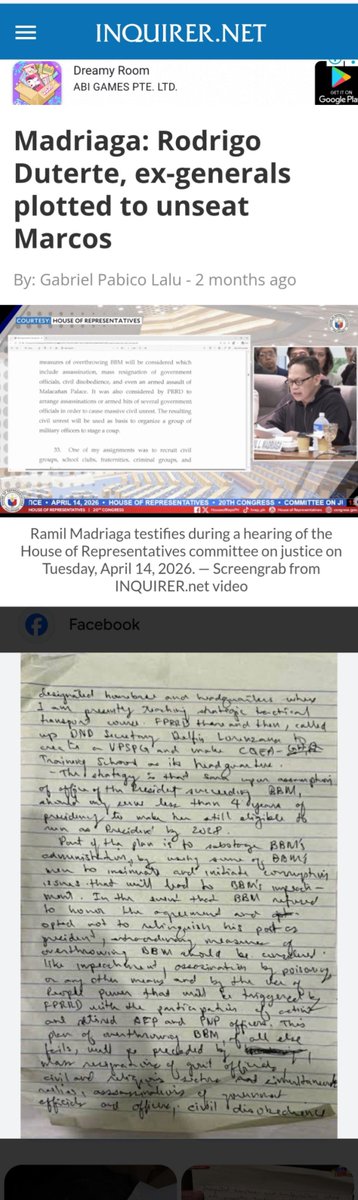 INQUIRER.NET
Dreamy Room
ABI GAMES PTE. LTD.
GET IT ON
Google Pla
Madriaga: Rodrigo
Duterte, ex-generals
plotted to unseat
Marcos
By: Gabriel Pabico Lalu - 2 months ago
COURTESY: HOUSE OF REPRESENTATIVES
measures of overthrowing BBM will be considered which
include assassination, mass resignation of government
officials, civil disobedience, and even an armed assault of
Malacañan Palace. It was also considered by PRRD to
arrange assassinations or armed hits of several government
officials in order to cause massive civil unrest. The resulting
civil unrest will be used as basis to organize a group of
military officers to stage a coup.
53. One of my assignments was to recruit civil
groups, school clubs, fraternities, criminal groups, and
MADRIAGA
TICE • APRIL 14, 2026 • HOUSE OF REPRESENTATIVES • 20TH CONGRESS • COMMITTEE ON JU
HOUSE OF REPRESENTATIVES | 20TH CONGRESS
Ramil Madriaga testifies during a hearing of the
House of Representatives committee on justice on
Tuesday, April 14, 2026. — Screengrab from
INQUIRER.net video
Facebook
designated and headquarters where
I am presently teaching strategic tactical
transport course. FPRRD there and then, called
up DND Secretary Delfin Lorenzana to
create a VPSPG and make
Training School as its headquarter.
- The strategy is that Sara upon assumption
of office of the President succeeding BBM,
should serve less than 4 years of
presidency to make her still eligible to
run as President by 2028.
Part of the plan is to sabotage BBM's
administration, by using some of BBM's
men to insinuate and initiate corruption
issues that will lead to BBM's impeach-
ment. In the event that BBM refused
to honor the agreement and
opted not to relinquish his post as
president, extraordinary measures of
overthrowing BBM should be considered
like impeachment, assassination by poisoning
or any other means and by the use of
People power that will be triggered by
FPRRD with the participation of active
and retired AFP and PNP officers. This
plan of overthrowing BBM, if all else
fails, will be preceded by
mass resignations of govt officials,
civil and religious sectors simultaneous
rallies, assassinations of government
officials and officers, civil disobedience